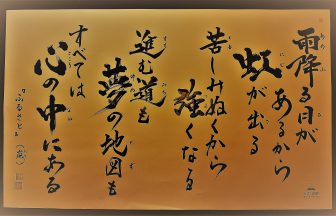 雨降る日が
あるから
虹が出る
苦しみぬくから
強くなる
進む道も
夢の地図も
すべては
心の中にある
『ふるさと』